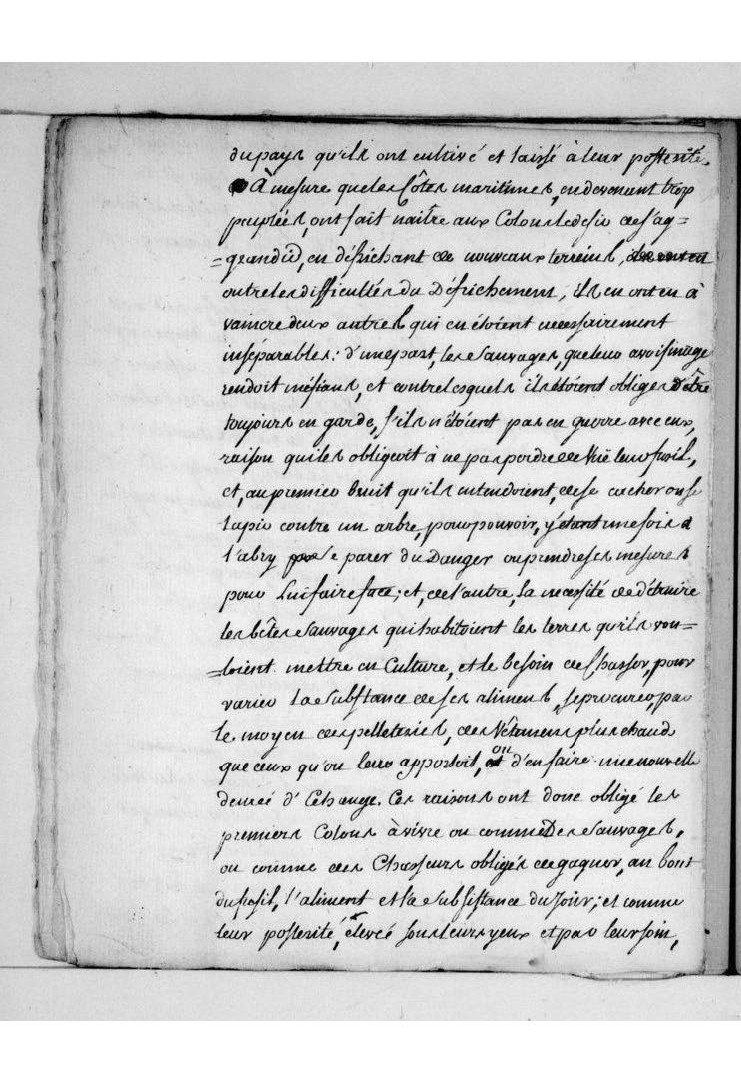 du pays qu'ils ont cultivé et laissé à leur postérité.
A mesure que les Côtes maritimes, en devenant trop
peuplées, ont fait naitre aux Colons le desir de s'ag=
=grandir, en défrichant de nouveaux terreins,
outre les difficultés du Défrichement, ils en ont eu à
vaincre deux autres qui en étoient necessairement
inséparables: d'une part, les Sauvages, que leur avoisinage
rendoit méfians, et contre lesquels ils étoient obligés d'être
toujours en garde, s'ils n'étoient pas en guerre avec eux,
raison qui les obligeoit à ne pas perdre de Vuë leur fusil,
et, au premier bruit qu'ils entendoient, de se cacher ou se
tapir contre un arbre, pour pouvoir, y étant une fois à
l'abry se parer du Danger ou prendre ses mesures
pour Lui faire face; et, de l'autre, la necessité de détruire
les bêtes Sauvages qui habitoient les terres qu'ils vou=
=loient mettre en Culture, et le besoin de Chasser, pour
varier la Substance de ses alimens, se procurer, par
le moyen des pelleteries, des Vêtemens plus chauds
que ceux qu'on leur apportoit, ou d'en faire une nouvelle
denreé d'Echange. Ces raisons ont donc obligé les
premiers Colons à vivre ou comme Des Sauvages,
ou comme des Chasseurs obligés de gagner, au bout
du fusil, l'aliment et la Subsistance du Jour; et comme
leur postérité, élevée sous leurs yeux et par leur soin,